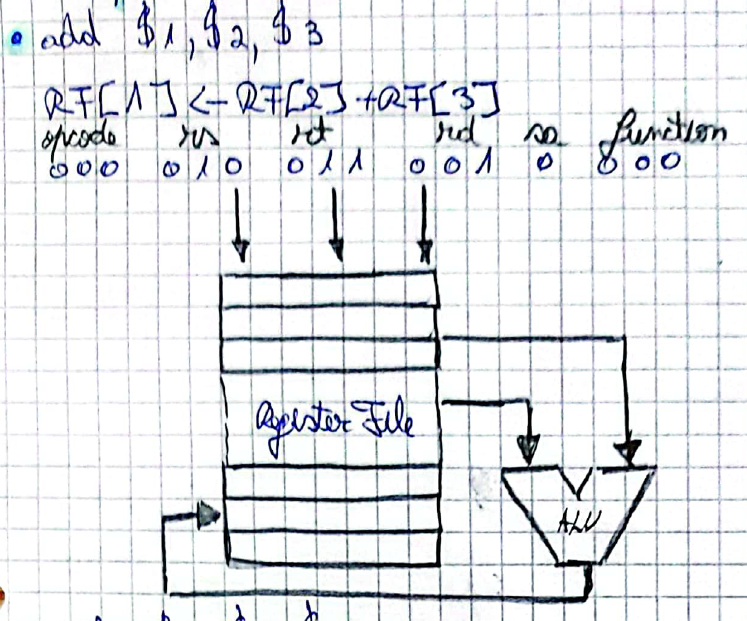 • add $1, $2, $3
RF[1] <- RF[2] + RF[3]
opcode rs rt rd sa function
000 010 011 001 0 000
Register File
ALU